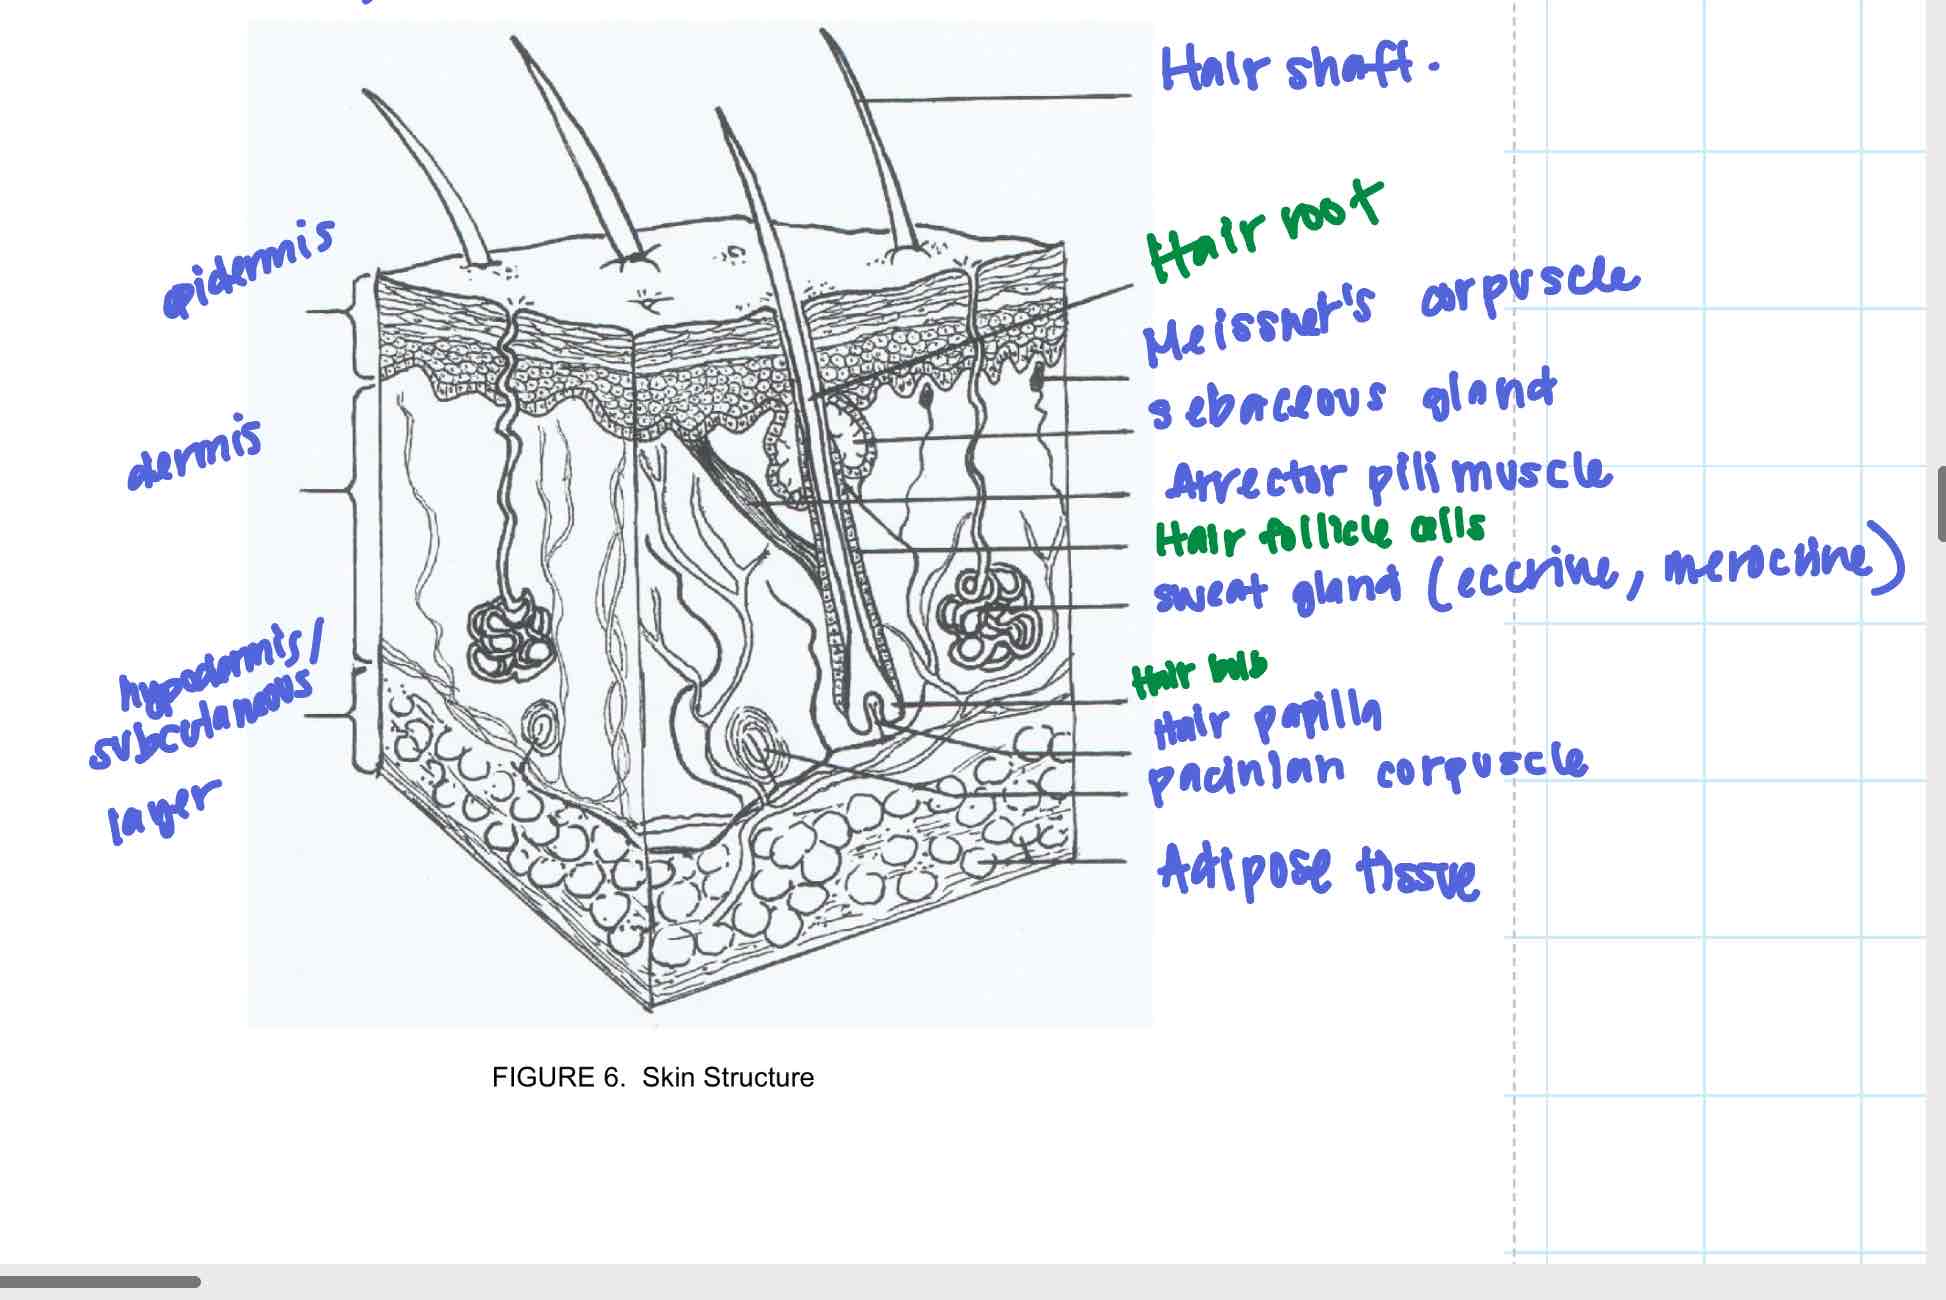 Hair shaft.
Hair root
epidermis
Meissner's corpuscle
sebaceous gland
dermis
Arrector pili muscle
Hair follicle cells
sweat gland (eccrine, merocrine)
hypodermis/
subcutaneous
layer
Hair bulb
Hair papilla
pacinian corpuscle
Adipose tissue
FIGURE 6. Skin Structure